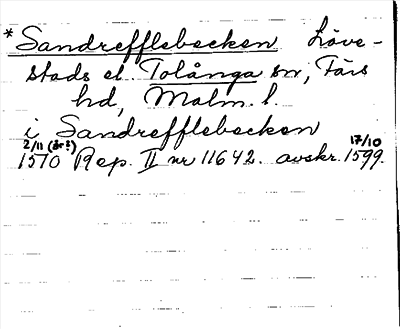 * Sandrefflebecken Löve-
stads el. Tolånga sn, Färs
hd, Malm. l.
i Sandrefflebecken
2/11 (år?) 17/10
1510 Rep. II nr 11642. avskr. 1599.